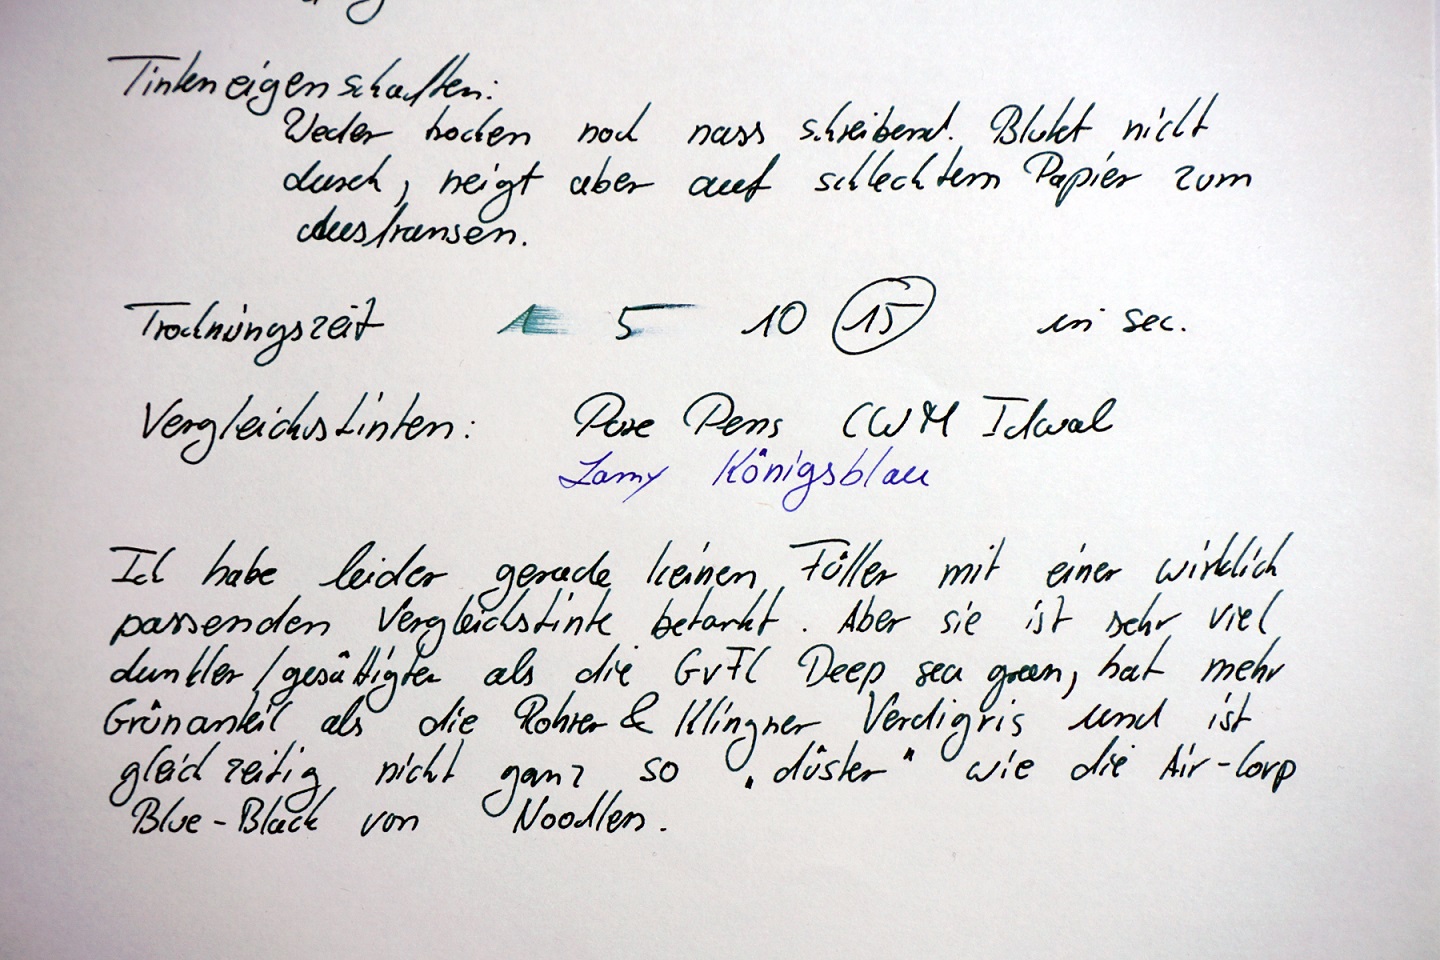 Tinteneigenschaften:
Weder trocken noch nass schreibend. Blutet nicht
durch, neigt aber auf schlechtem Papier zum
Ausfransen.
Trocknungszeit 1 5 10 15 in sec.
Vergleichstinten: Pure Pens CWM Idwal
Lamy Königsblau
Ich habe leider gerade keinen Füller mit einer wirklich
passenden Vergleichstinte betankt. Aber sie ist sehr viel
dunkler/gesättigter als die GvFC Deep sea green, hat mehr
Grünanteil als die Rohrer & Klingner Verdigris und ist
gleichzeitig nicht ganz so „düster" wie die Air-Corp
Blue-Black von Noodlers.